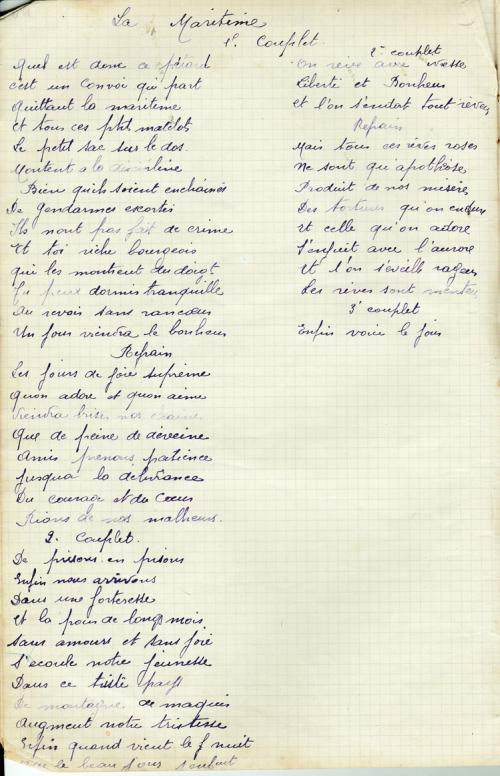 La Maritime
1r Couplet
Quel est donc ce pétard
c'est un Convoi qui part
Quittant la maritime
et tous ces ptit matelots
Le petit sac sur le dos
Montent a la discipline
Bien qu'ils soient enchainés
De Gendarmes escortés
Ils nont pas fait de crime
Et toi riche bourgeois
qui les montrent du doigt
Tu peux dormir tranquille
Au revoir sans rancœur
Un jour viendra le bonheur
Refrain
Les jours de joie suprème
Quon adore et quon aime
Viendra briser nos
Que de peine de déveine
Amis prenons patience
Jusqua la délivrance
Du courage et du Cœur
Rions de nos malheurs.
2e Couplet.
De prisons en prisons
Enfin nous arrivons
Dans une forteresse
et la pour de longs mois
sans amours et sans joie
S'ecoule notre jeunesse
Dans ce triste pays
De montagne de maquis
Augment notre tristesse
Enfin quand vient le nuit
le beau jour s'enfuit
2e couplet
On rêve avec ivresse
Liberté et Bonheur
et l'on s'endort tout rêveur
Refrain
Mais tous ces rêves roses
Ne sont qu'apothéose
Produit de nos misère
Des qu'on endure
et celle qu'on adore
S'enfuit avec l'aurore
Et l'on s'éveille rageur
Les rêves sont menteur
3e couplet
Enfin voici le jour